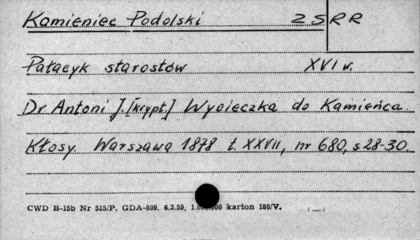 Kamieniec Podolski ZSRR
Pałacyk starostów XVI w.
Dr Antoni J. [krypt.] Wycieczka do Kamieńca.
Kłosy. Warszawa 1878 t. XXVII, nr 680, s 28-30.
CWD B-15b Nr 515/P. GDA-809. 6.3.59. karton 180/V.